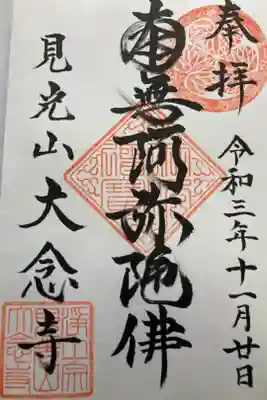 奉拝
令和三年十一月廿日
南無阿弥陀佛
見光山大念寺